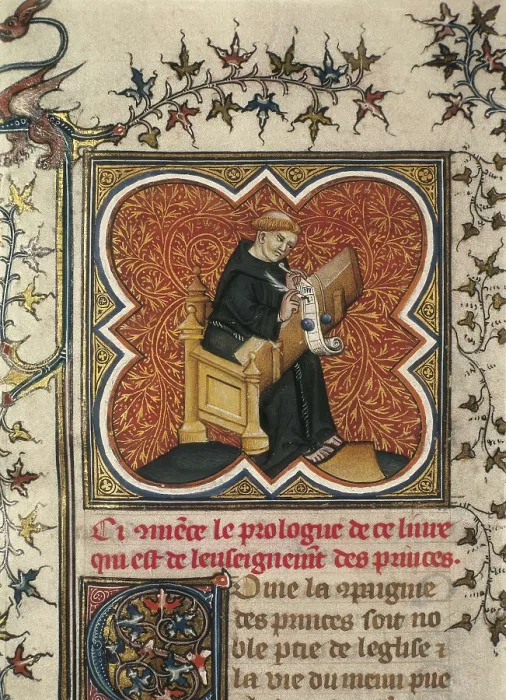 Ci ꝯmēce le prologue de ce liure
qui est de lenseignemēt des princes.
COme la ꝯpaignie
des princes soit no
ble ptie de leglise ⁊
la vie du menu pue